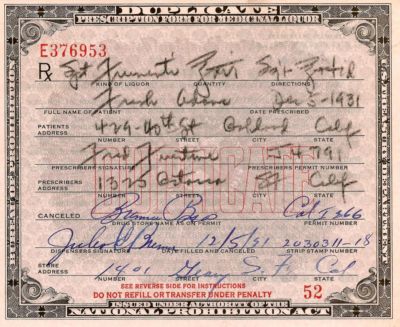 DUPLICATE
PRESCRIPTION FORM FOR MEDICINAL LIQUOR
E376953
Rx Spt Frumenti
KIND OF LIQUOR QUANTITY DIRECTIONS
Frank Dec 5-1931
FULL NAME OF PATIENT DATE PRESCRIBED
PATIENTS ADDRESS 429-40th St Oakland Calif
NUMBER STREET CITY STATE
Fred
PRESCRIBERS SIGNATURE PRESCRIBERS PERMIT NUMBER
PRESCRIBERS ADDRESS SF Calif
NUMBER STREET CITY STATE
DUPLICATE
CANCELED Bros Cal
DRUG STORE NAME AS ON PERMIT PERMIT NUMBER
12/5/31 2030311-18
DISPENSERS SIGNATURE DATE FILLED AND CANCELED STRIP STAMP NUMBER
Geary S. F. Cal
ADDRESS NUMBER STREET CITY STATE
SEE REVERSE SIDE FOR INSTRUCTIONS
DO NOT REFILL OR TRANSFER UNDER PENALTY 52
ISSUED UNDER AUTHORITY OF THE
NATIONAL PROHIBITION ACT